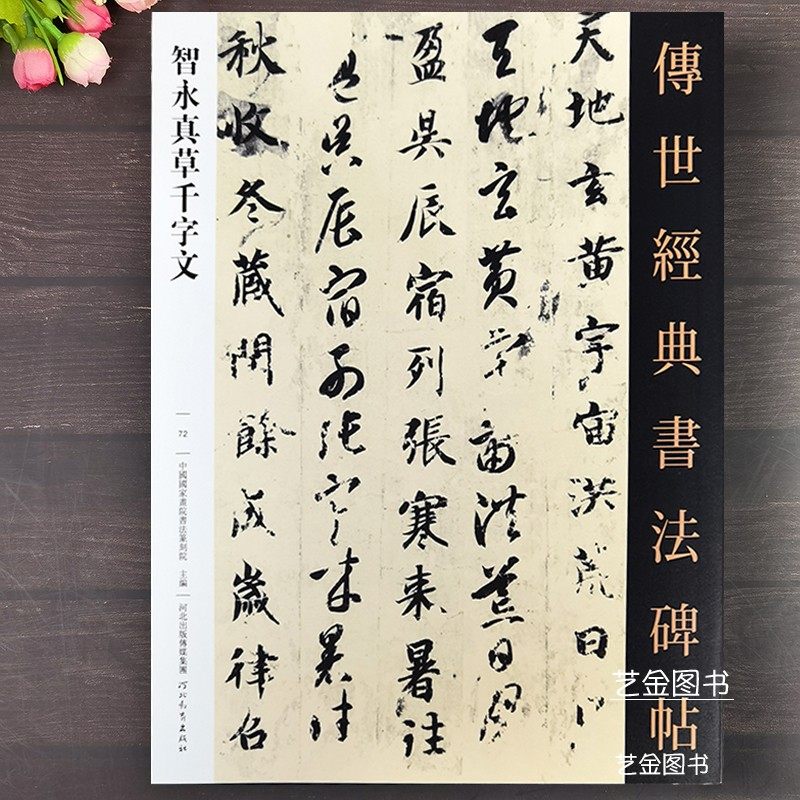 傳世經典書法碑帖
天地玄黄宇宙洪荒日月
天地玄黄宇宙洪荒日月
盈昃辰宿列張寒来暑往
盈昃辰宿列張寒来暑往
秋收冬藏閏餘成歲律召
智永真草千字文
72
中國國家畫院書法篆刻院 主編
河北出版傳媒集團 河北教育出版社
艺金图书
艺金图书